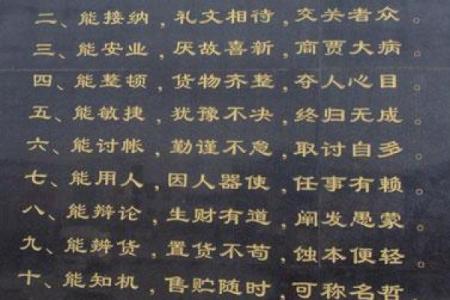 二、能接纳，礼文相待，交关者众。
三、能安业，厌故喜新，商贾大病。
四、能整顿，货物齐整，夺人心目。
五、能敏捷，犹豫不决，终归无成。
六、能讨帐，勤谨不怠，取讨自多。
七、能用人，因人器使，任事有赖。
八、能辩论，生财有道，阐发愚蒙。
九、能辨货，置货不苟，蚀本便轻。
十、能知机，售贮随时，可称名哲。